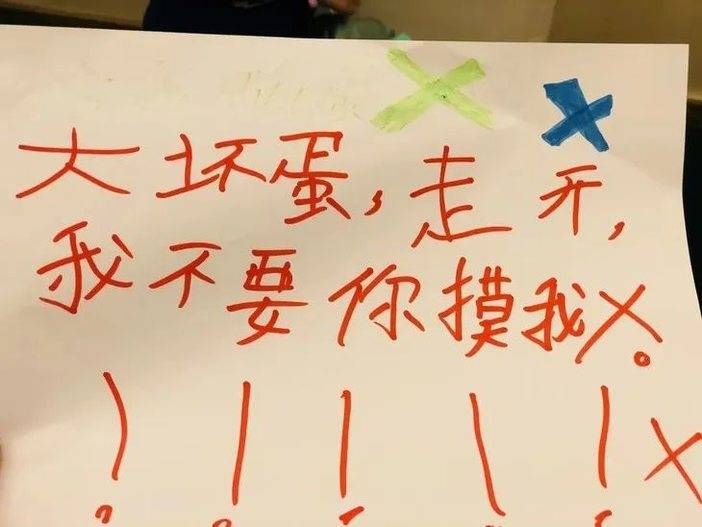 大坏蛋,走开,
我不要你摸我X。
!!!!!X